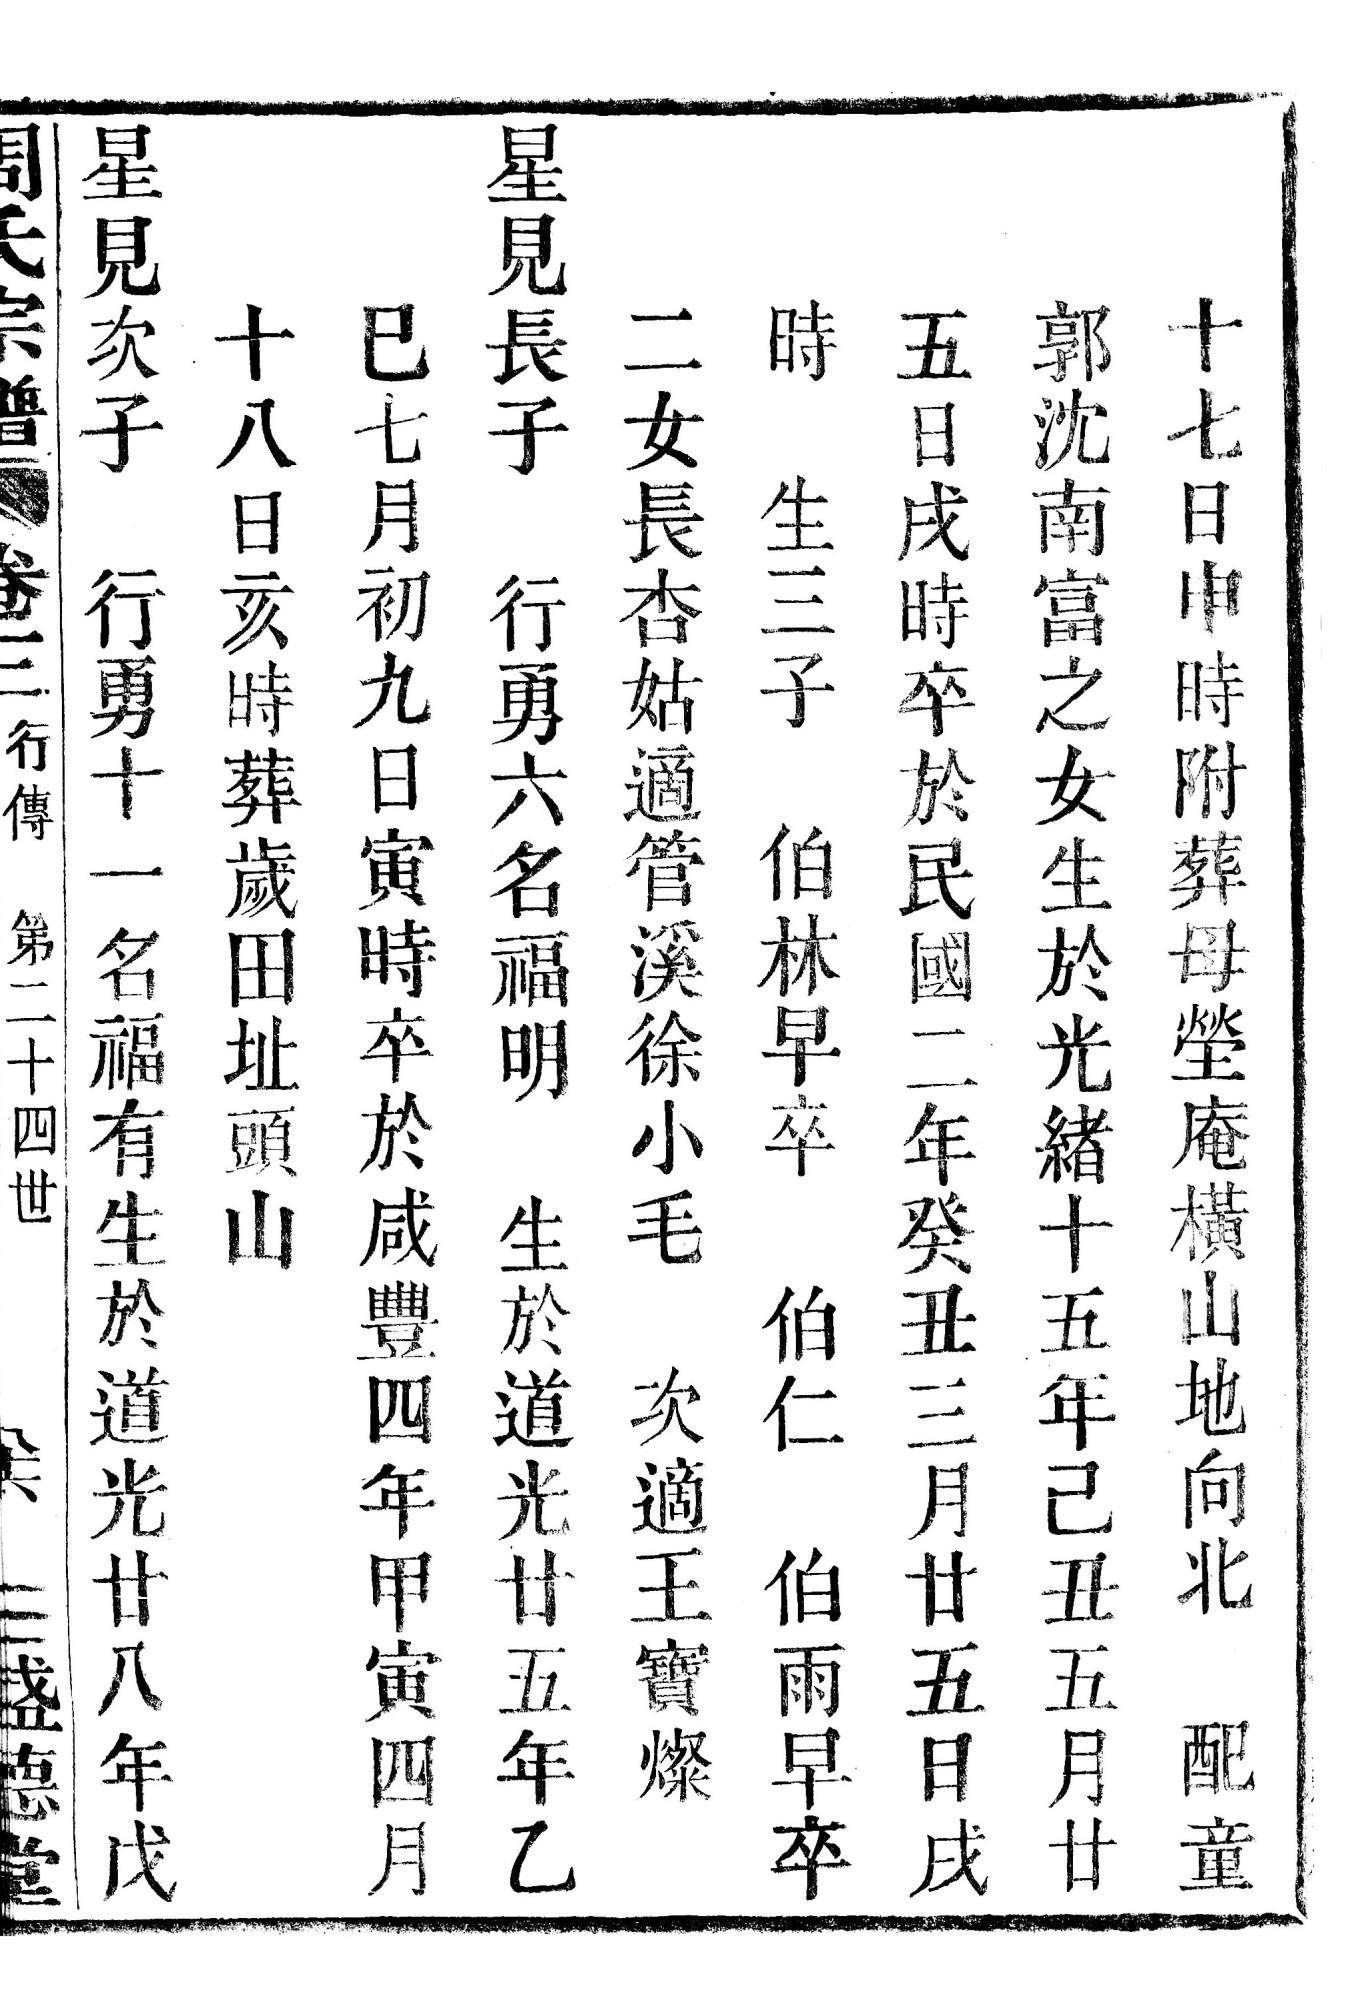 十七日申時附葬母塋庵橫山地向北　配童
郭沈南富之女生於光緒十五年己丑五月廿
五日戌時卒於民國二年癸丑三月廿五日戌
時　生三子　伯林早卒　伯仁　伯雨早卒
二女長杏姑適管溪徐小毛　次適王寶燦
星見長子　行勇六名福明　生於道光廿五年乙
巳七月初九日寅時卒於咸豐四年甲寅四月
十八日亥時葬歲田址頭山
星見次子　行勇十一名福有生於道光廿八年戊
周氏宗譜　卷三　行傳　第二十四世　盛德堂